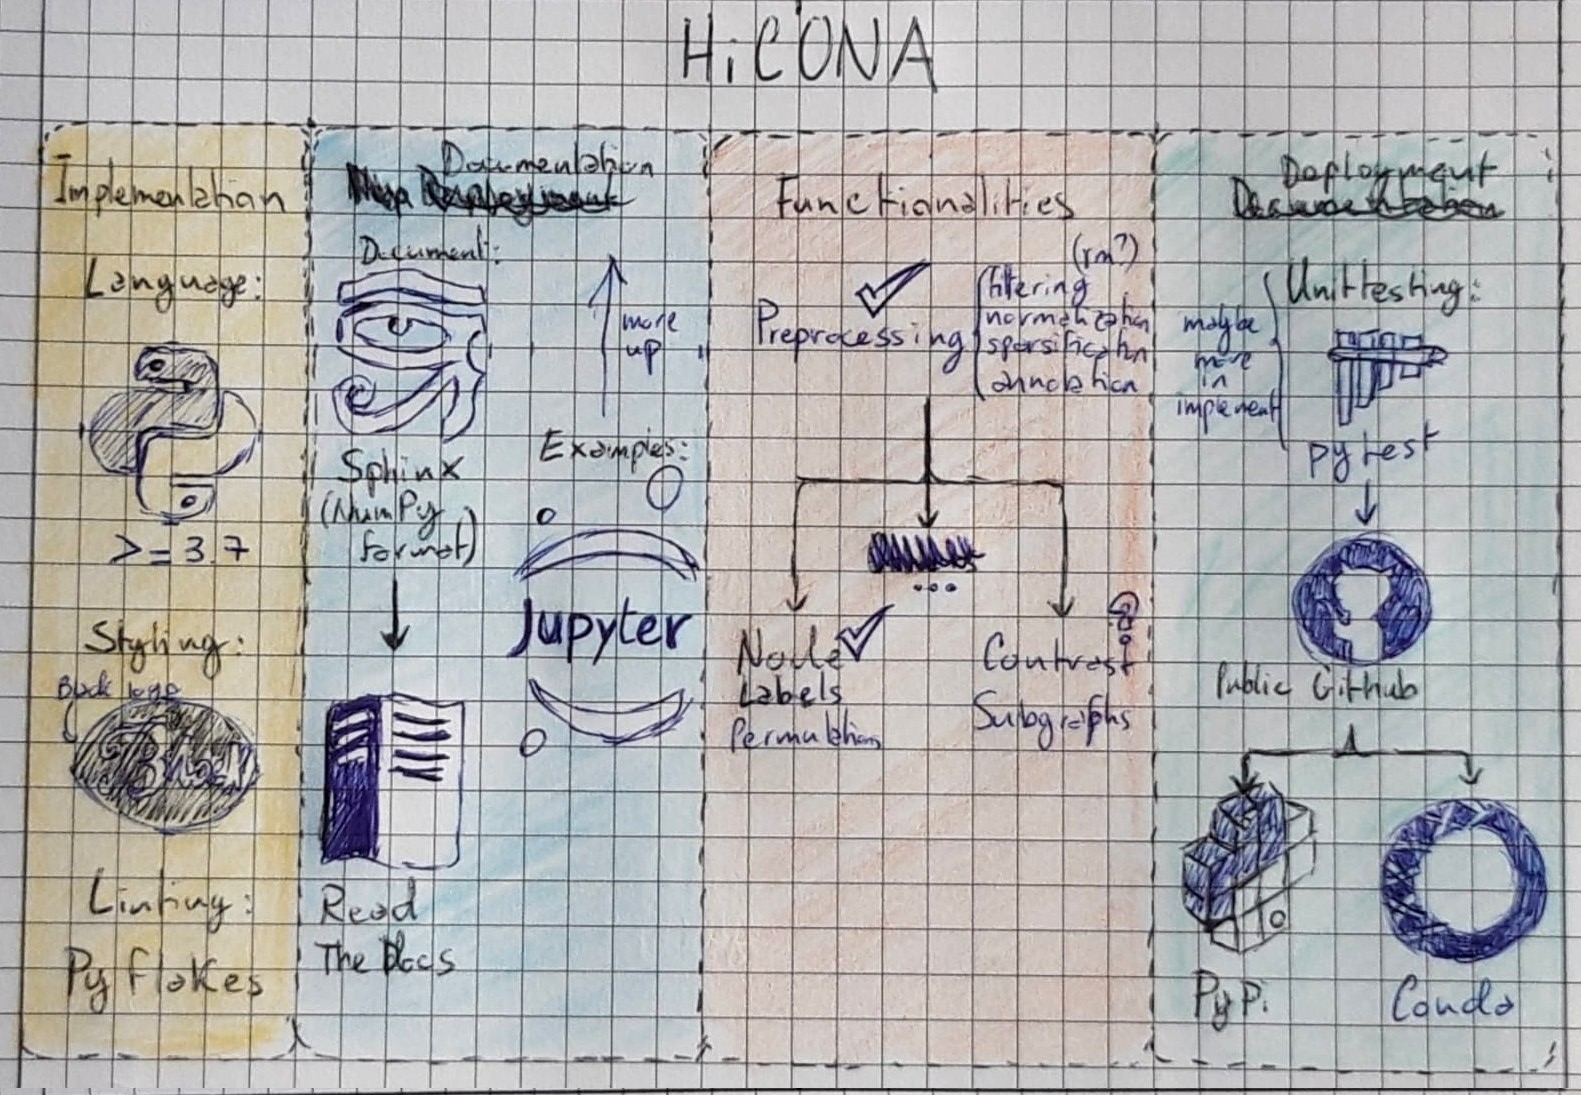 HiCONA
Implementation
Language:
>= 3.7
Styling:
Black logo
Linting:
Py flakes
Documentation
Document:
more
up
Sphinx
(NumPy
format)
Examples:
Jupyter
Read
The Docs
Functionalities
Preprocessing
(rm?)
filtering
normalization
sparsification
annotation
...
Node
Labels
Permutation
Contrast
Subgraphs
Deployment
Unittesting:
maybe
more
in
implement
pytest
Public Github
PyPi
Conda